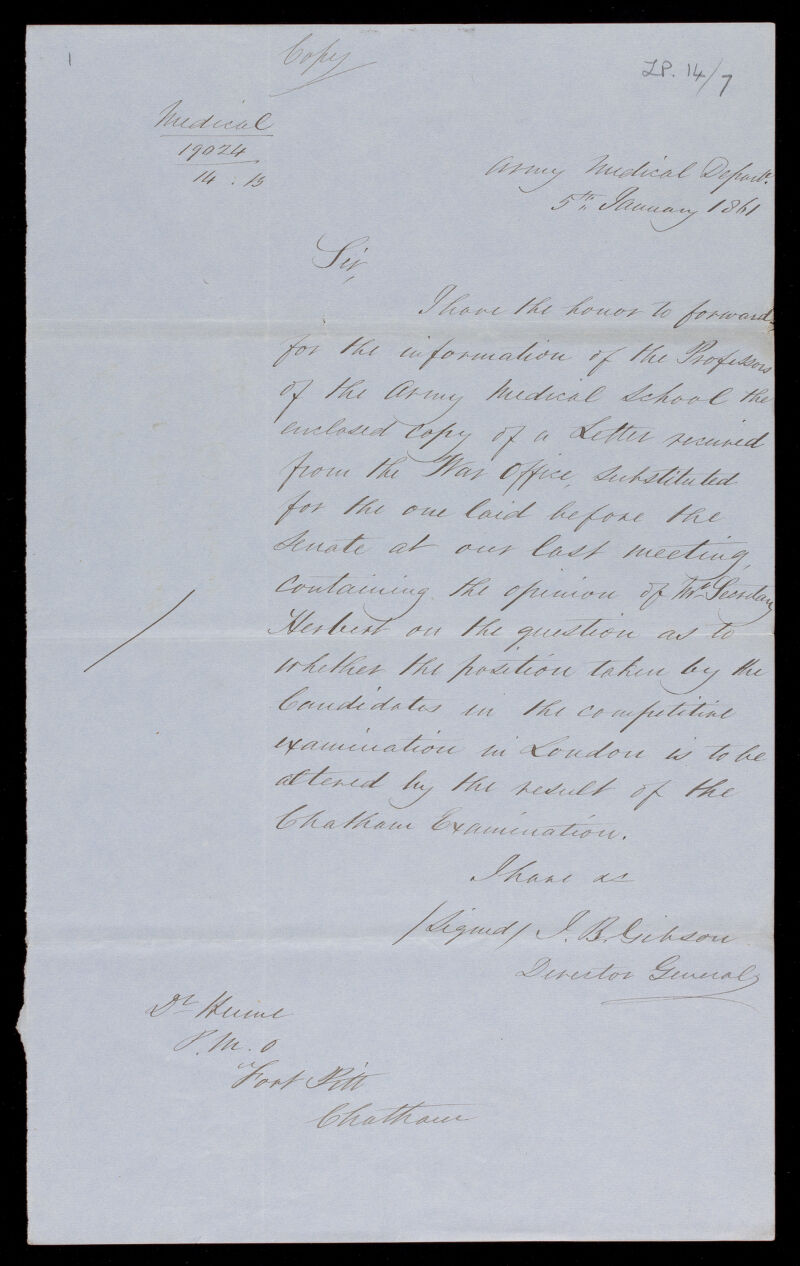 1
Copy
LP. 14/7
Medical
19024
14 : 13
Army Medical Depart.
5th January 1861
Sir,
I have the honor to forward
for the information of the Professors
of the Army Medical School the
enclosed copy of a Letter received
from the War Office, substituted
for the one laid before the
Senate at our last meeting,
containing the opinion of Mr. Secretary
Herbert on the question as to
whether the position taken by the
Candidates in the competitive
examination in London is to be
altered by the result of the
Chatham Examination.
I have &c
/Signed/ J. B. Gibson
Director General
Dr Hume
P. M. O
Fort Pitt
Chatham